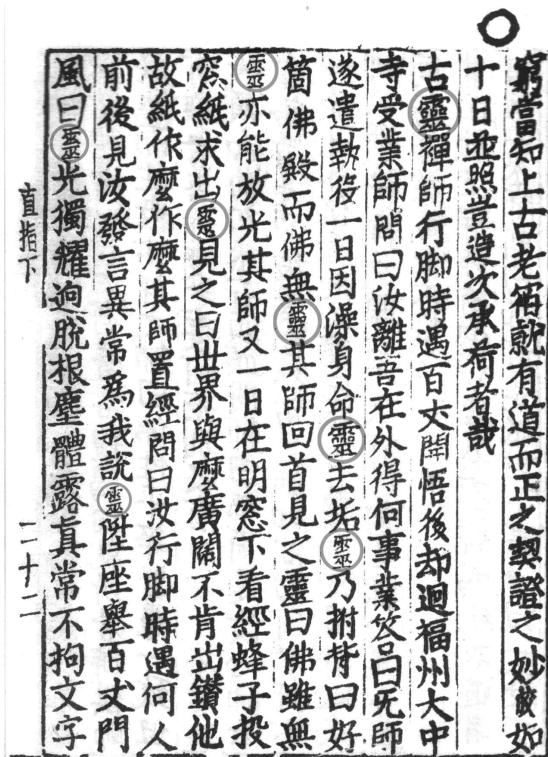 窮當知上古老宿就有道而正之契證之妙如
十日並照豈造次承荷者哉
古靈禪師行脚時遇百丈開悟後却迴福州大中
寺受業師問曰汝離吾在外得何事業答曰旡師
遂遣執役一日因澡身命靈去垢靈乃拊背曰好
箇佛殿而佛無靈其師回首見之靈曰佛雖無
靈亦能放光其師又一日在明窓下看經蜂子投
窓紙求出靈見之曰世界與麽廣闊不肯出鑽他
故紙作麽作麽其師置經問曰汝行脚時遇何人
前後見汝發言異常爲我說靈陞座舉百丈門
風曰靈光獨耀逈脫根塵體露眞常不拘文字
直指下 二十二